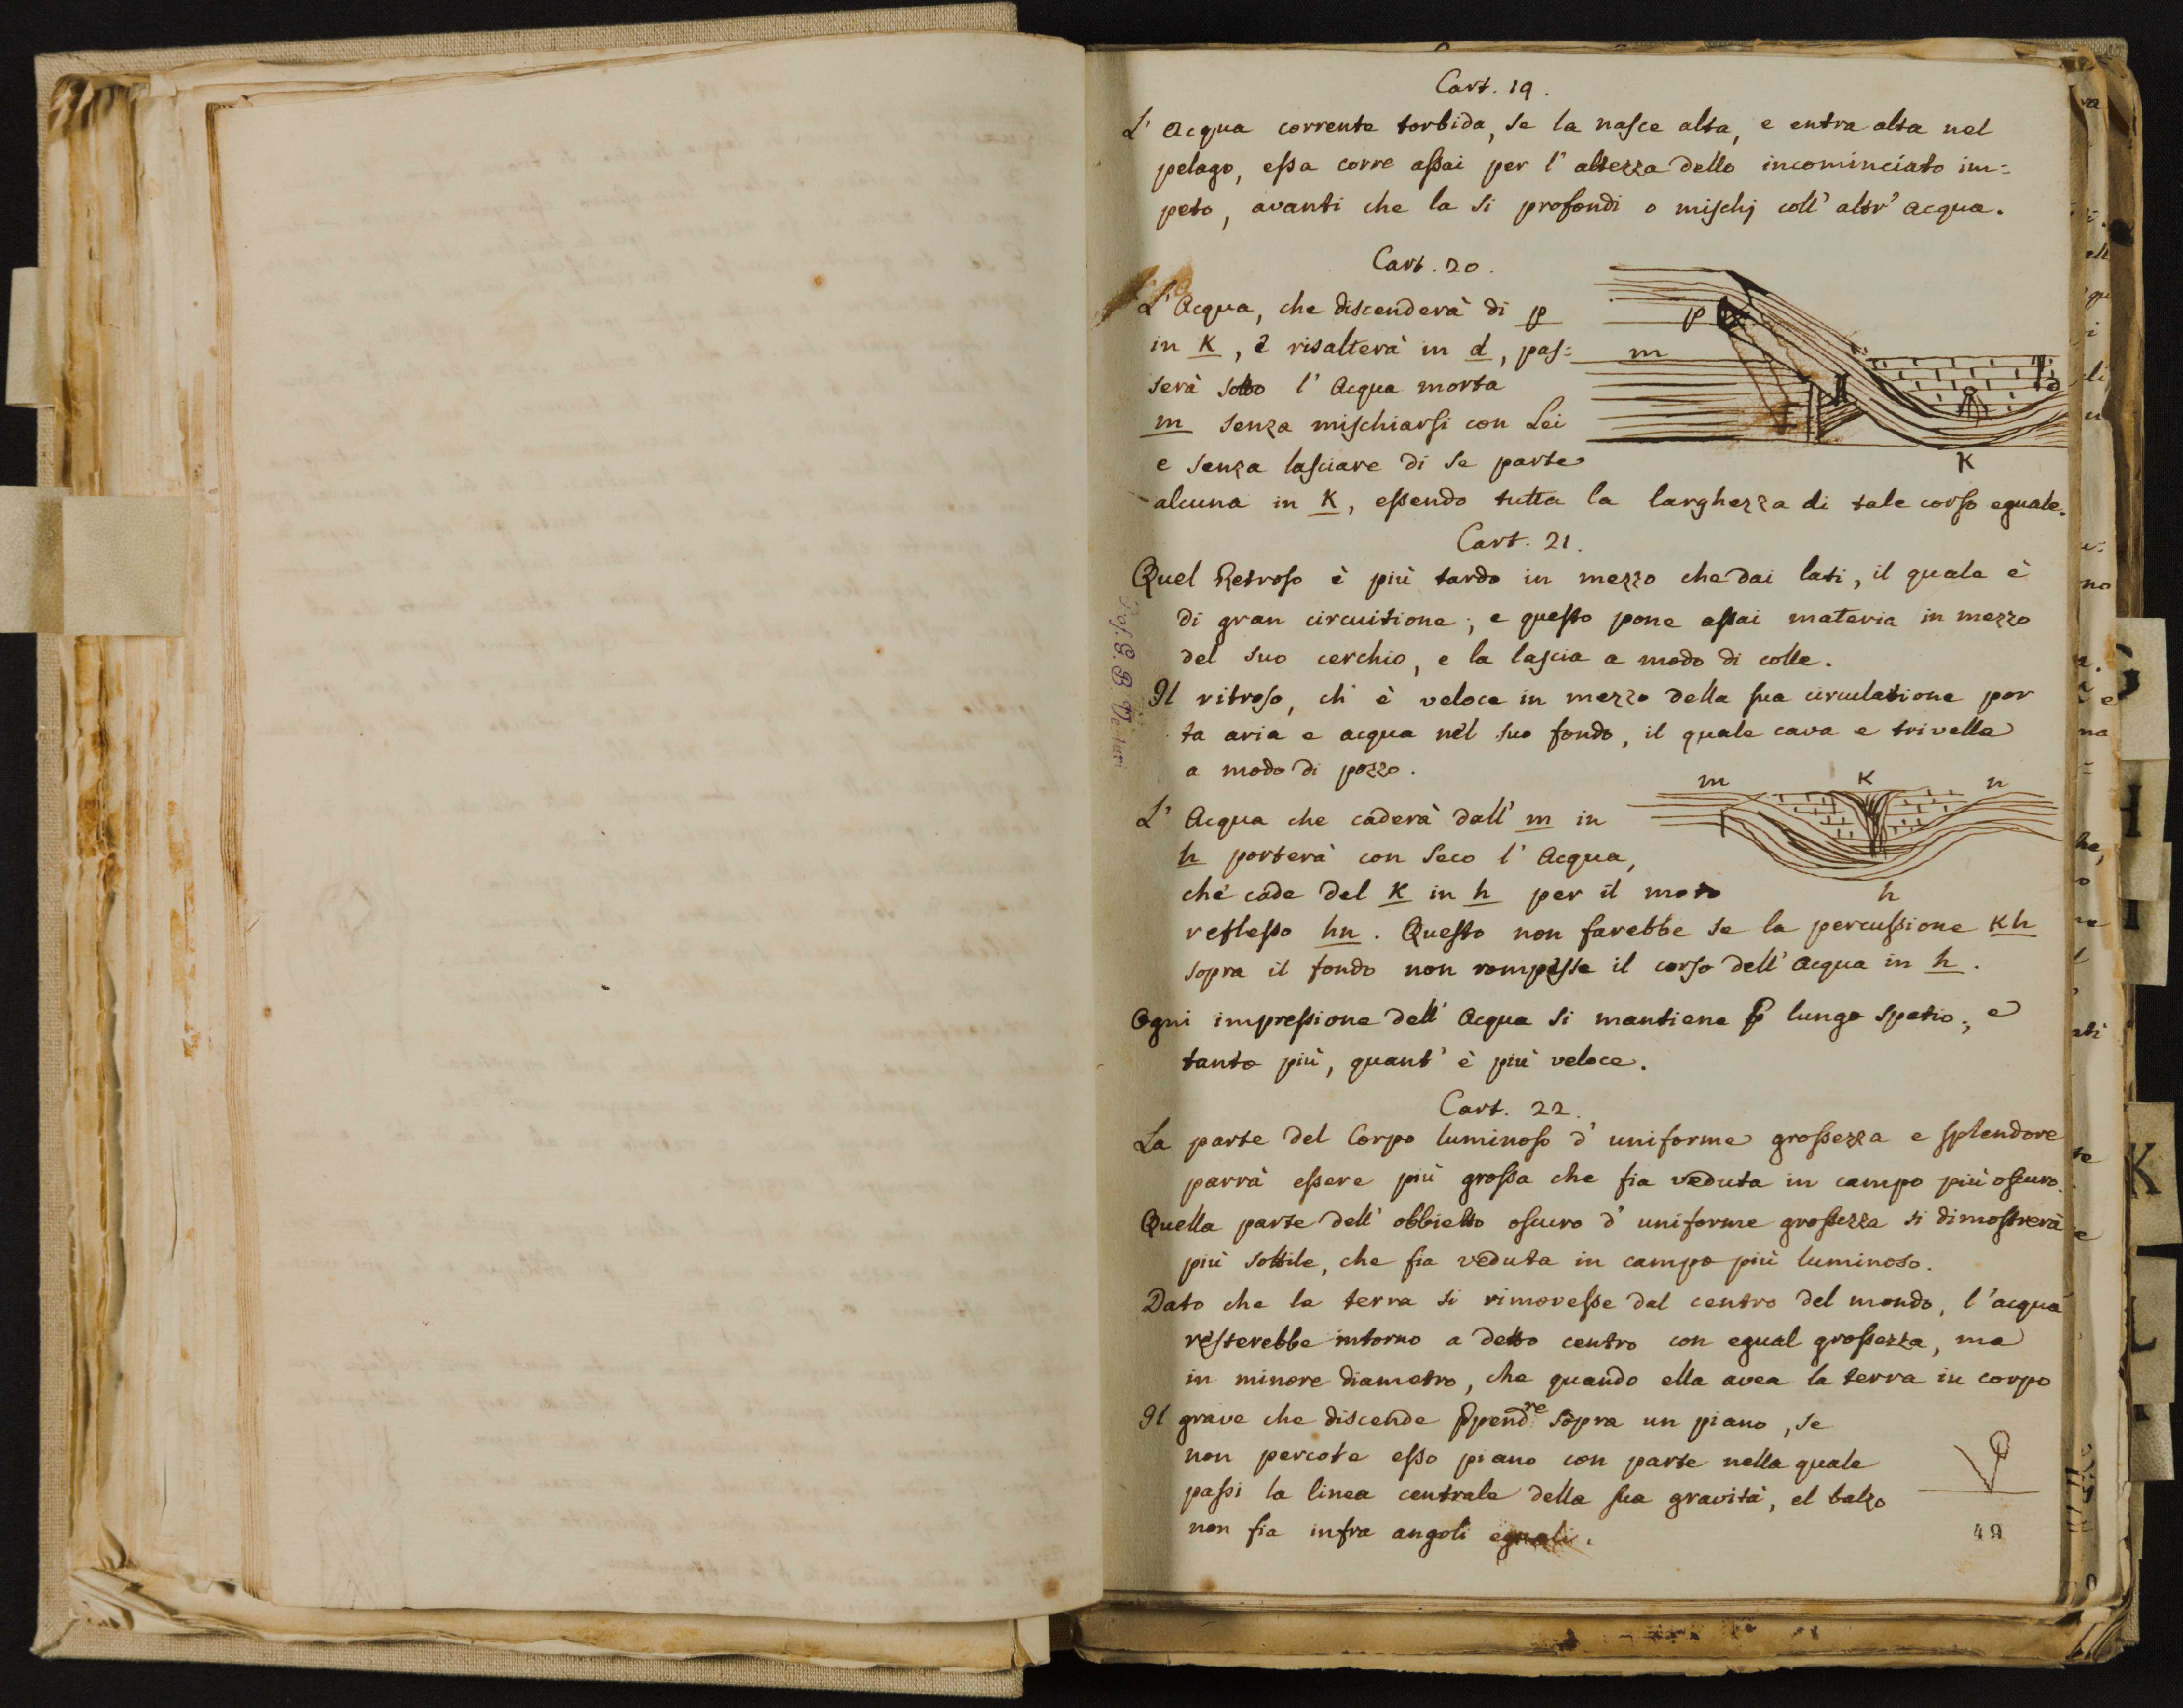 Cart. 19.
L' Acqua corrente torbida, se la nasce alta, e entra alta nel
pelago, essa corre assai per l' altezza dello incominciato im=
peto, avanti che la si profondi o mischj coll' altr' acqua.
Cart. 20.
L' Acqua, che discenderà di p
in K, e risalterà in d, pas=
serà sotto l' Acqua morta
m senza mischiarsi con Lei
e senza lasciare di se parte
alcuna in K, essendo tutta la larghezza di tale corso eguale.
p
m
d
K
Cart. 21.
Quel Retroso è più tardo in mezzo che dai lati, il quale è
di gran circuitione; e questo pone assai materia in mezzo
del suo cerchio, e la lascia a modo di colle.
Il ritroso, ch' è veloce in mezzo della sua circulatione por
ta aria e acqua nel suo fondo, il quale cava e trivella
a modo di pozzo.
L' Acqua che caderà dall' m in
h porterà con seco l' Acqua,
che cade del K in h per il moto
reflesso hn. Questo non farebbe se la percussione Kh
sopra il fondo non rompesse il corso dell' Acqua in h.
m K n
h
Ogni impressione dell' Acqua si mantiene p lungo spatio; e
tanto più, quant' è più veloce.
Cart. 22.
La parte del Corpo luminoso d' uniforme grossezza e splendore
parrà essere più grossa che fia veduta in campo più oscuro.
Quella parte dell' obbietto oscuro d' uniforme grossezza si dimostrerà
più sottile, che fia veduta in campo più luminoso.
Dato che la terra si rimovesse dal centro del mondo, l' acqua
resterebbe intorno a detto centro con egual grossezza, ma
in minore diametro, che quando ella avea la terra in corpo
Il grave che discende ppend.re sopra un piano, se
non percote esso piano con parte nella quale
passi la linea centrale della sua gravità, el balzo
non fia infra angoli eguali.
49
Prof. G. B. De Toni
K